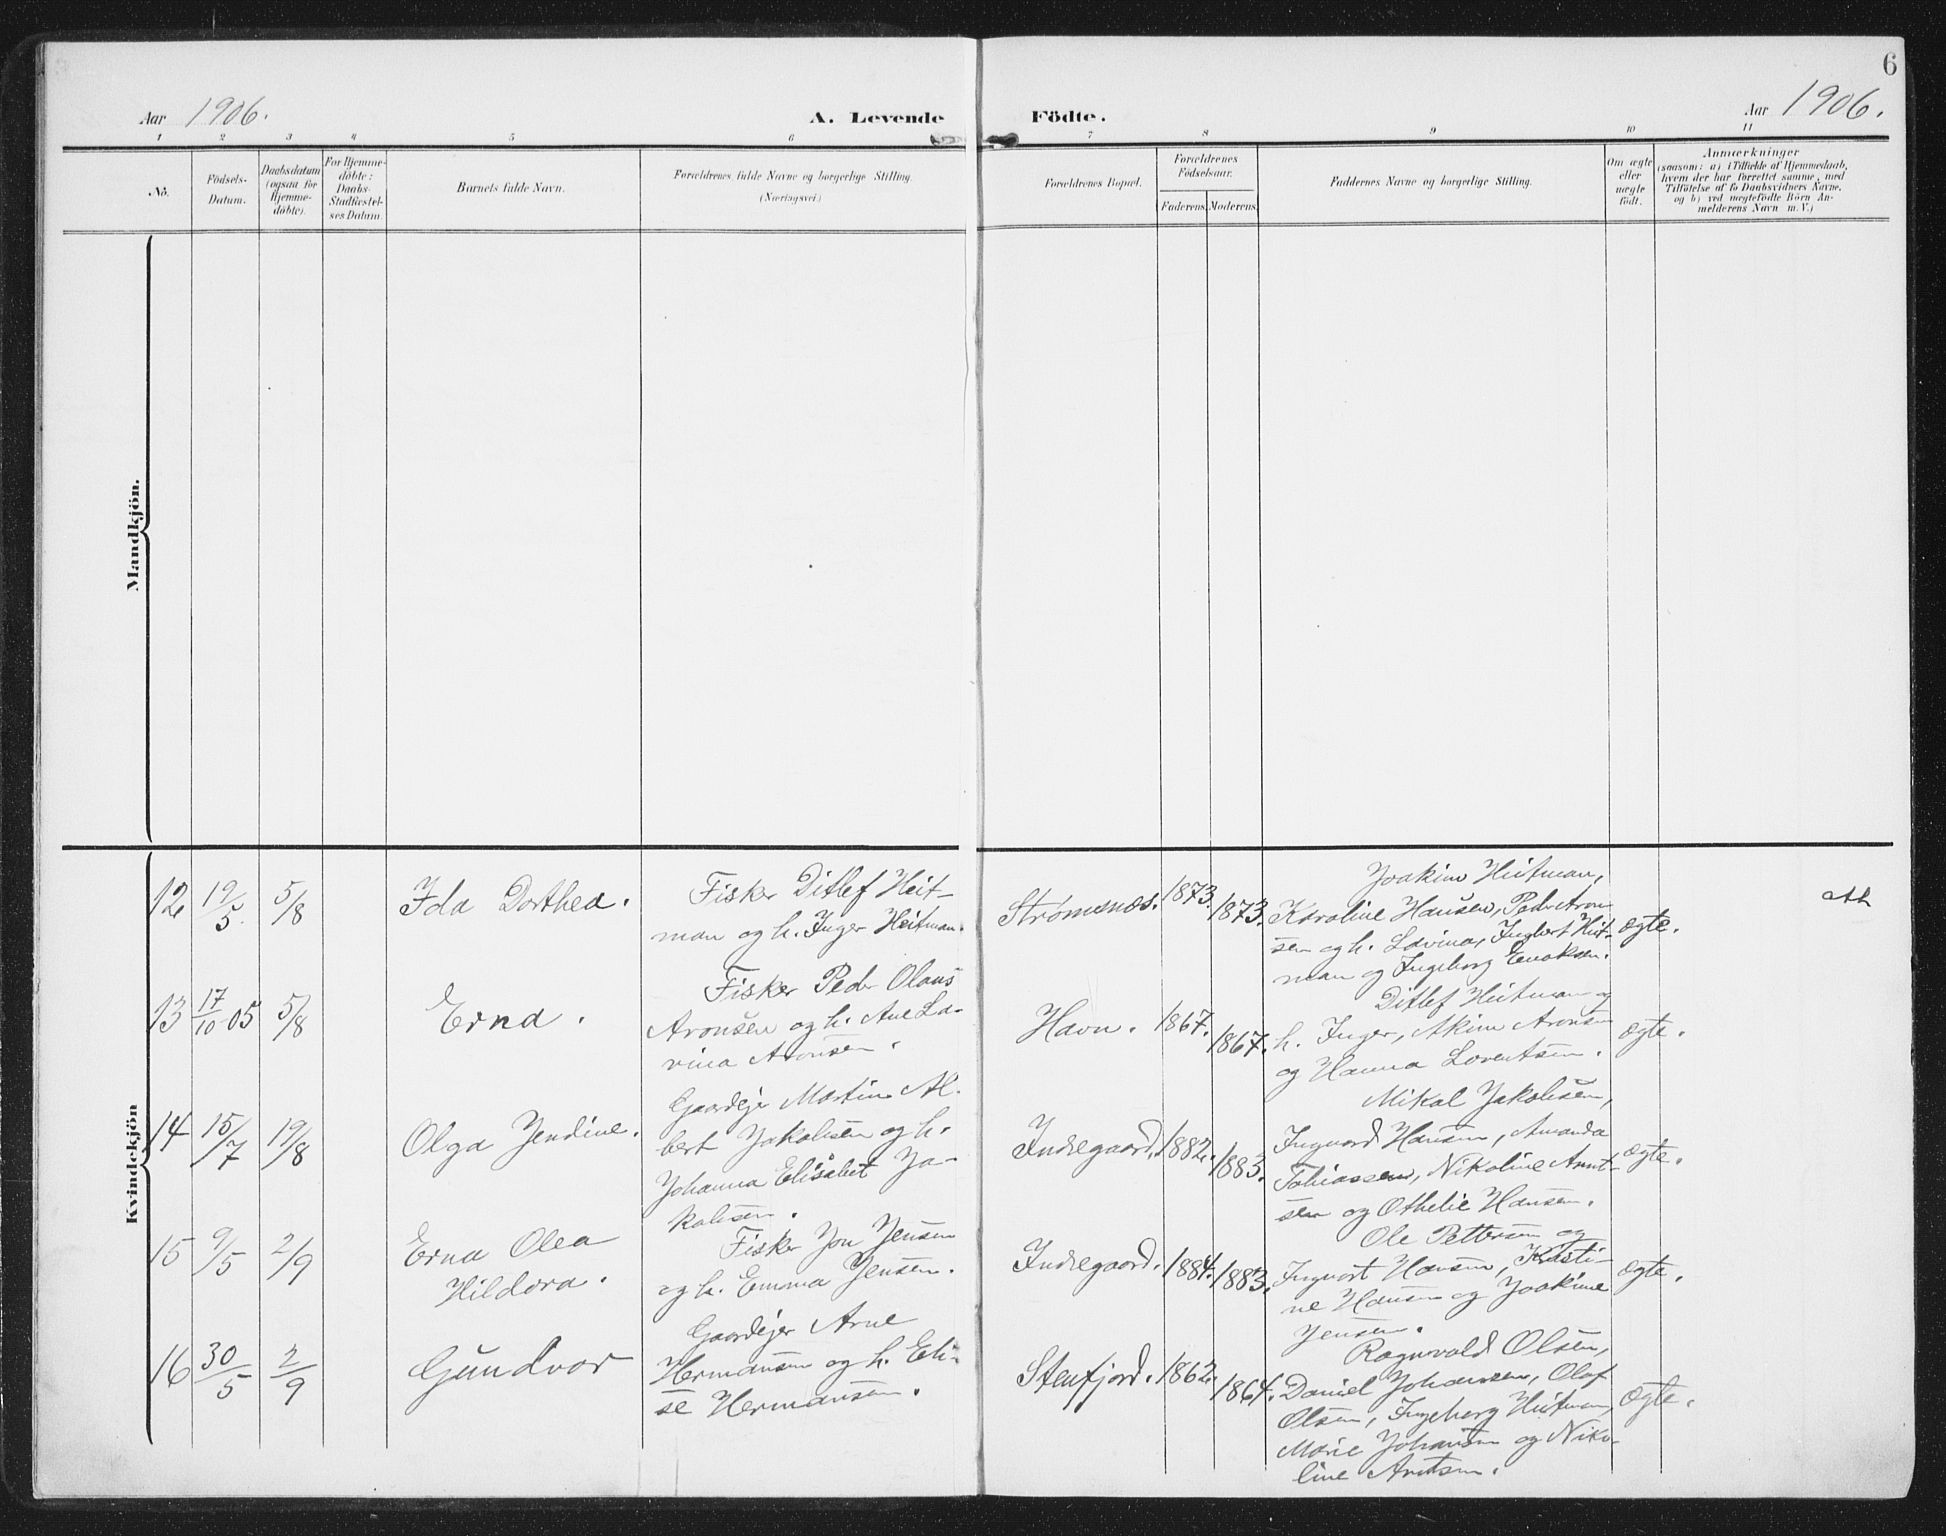 6
Aar 1906.
A. Levende Födte.
Aar 1906.
1 2 3 4 5 6 7 8 9 10 11
No.
Födsels-
Datum.
Daabsdatum
(ogsaa for
Hjemme-
döbte).
For Hjemme-
döbte:
Daabs-
Stadfæstel-
ses Datum.
Barnets fulde Navn.
Forældrenes fulde Navne og borgerlige Stilling.
(Næringsvei)
Forældrenes Bopæl.
Forældrenes
Födselsaar.
Faderens. Moderens.
Faddernes Navne og borgerlige Stilling.
Om ægte
eller
uægte
födt.
Anmærkninger
(saasom: a) i Tilfælde af Hjemmedaab,
hvem der har forrettet samme, med
Tilföielse af to Daabsvidners Navne,
og b) ved uægtefödte Börn An-
melderens Navn m. V.)
Mandkjön.
Kvindekjön
12
19/5.
5/8
Ida Dorthea.
Fisker Ditlef Heit-
man og h. Inger Heitman.
Strømsnæs.
1873.
1873.
Joakim Heitman,
Karoline Hansen, Peder Aron
sen og h. Lavina, Ingbert Heit-
man og Ingeborg Enoksen.
ægte.
13
17/10-05
5/8
Erna.
Fisker Peder Olaus
Aronsen og h. Ane La-
vina Aronsen.
Havn.
1867.
1867.
Ditlef Heitman og
h. Inger, Akim Aronsen
og Hanna Lorentsen.
ægte.
14
15/7
19/8
Olga Jendine.
Gaardejer Martin Al-
bert Jakobsen og h.
Johanna Elisabet Ja-
kobsen.
Indregaard.
1882.
1883.
Mikal Jakobsen,
Ingvard Hansen, Amanda
Tobiassen, Nikoline Arnt-
sen og Othelie Hansen.
ægte.
15
9/5
2/9
Erna Olea
Hildora.
Fisker Jon Jensen
og h. Emma Jensen.
Indregaard.
1884.
1883.
Ole Pettersen og
Ingvart Hansen, Kristi-
ne Hansen og Joakime
Jensen.
ægte.
16
30/5
2/9
Gundvor
Gaardejer Arne
Hermansen og h. Eli-
se Hermansen.
Stenfjord.
1862.
1864.
Ragnvald Olsen,
Daniel Johansen, Olaf
Olsen, Ingeborg Heitman,
Marie Johansen og Niko-
line Arntsen.
ægte.